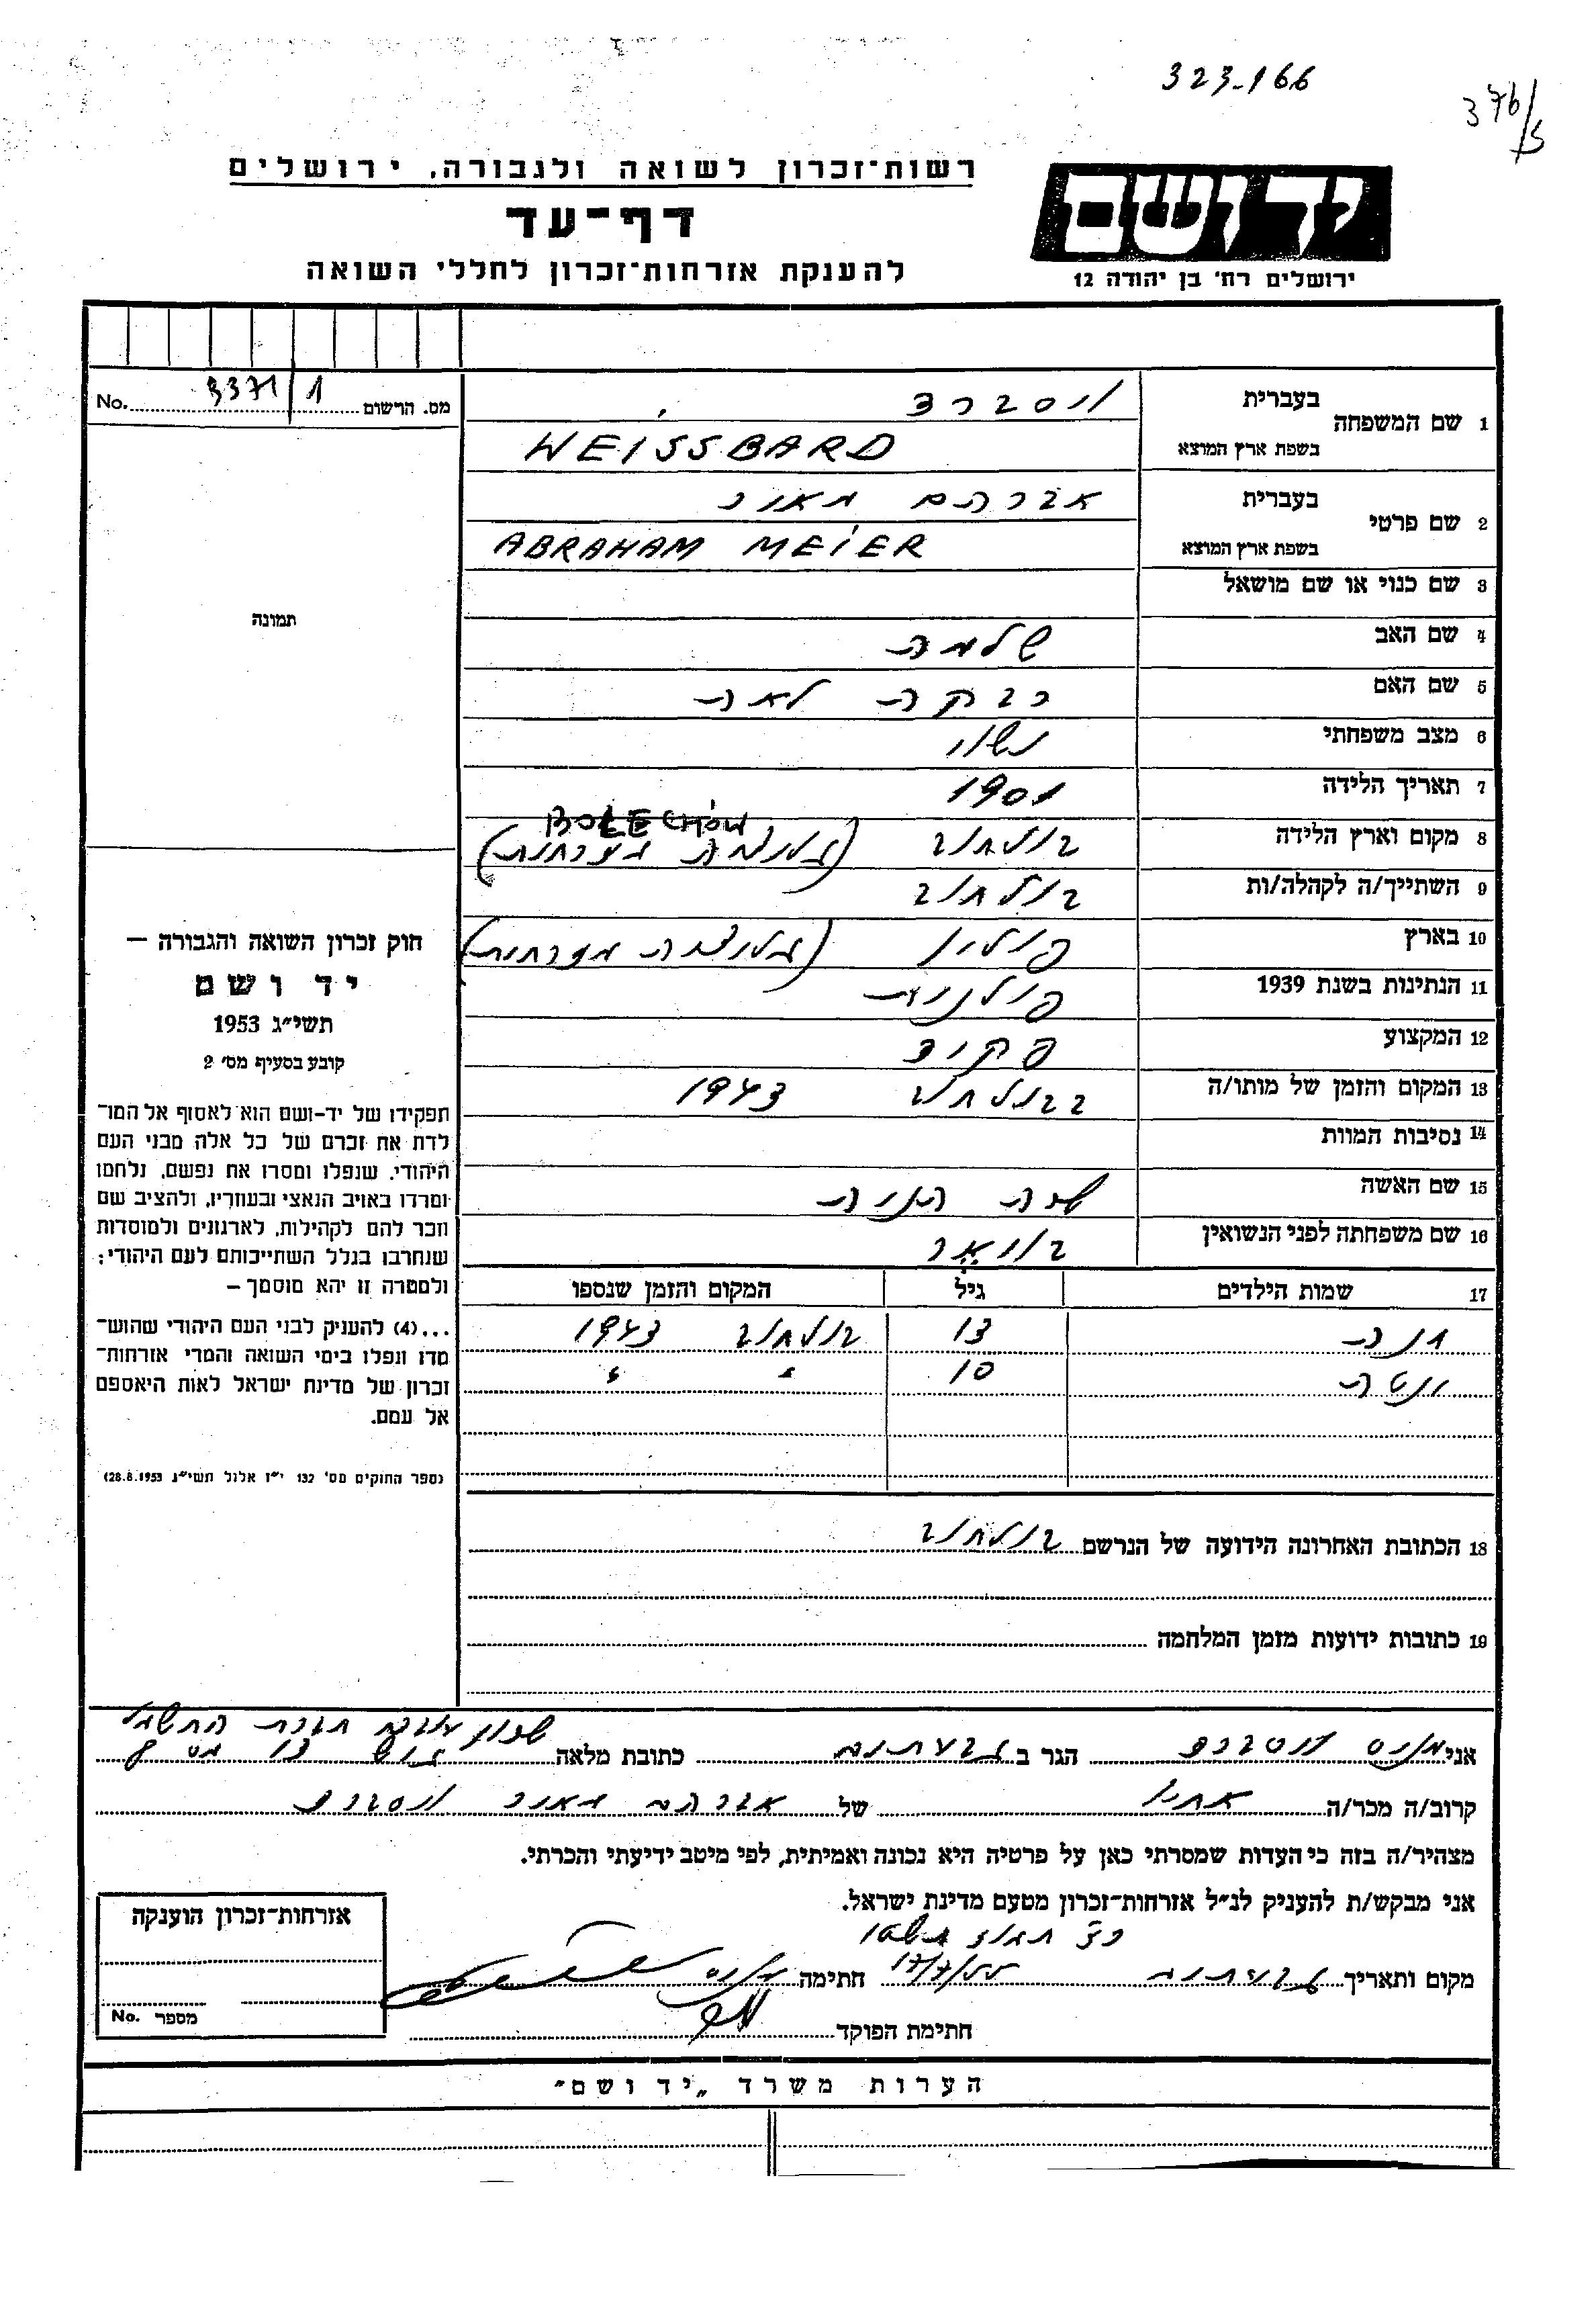 323-166
376/5
רשות־זכרון לשואה ולגבורה, ירושלים
דף־עד
להענקת אזרחות־זכרון לחללי השואה
יד ושם
ירושלים רח' בן יהודה 12
No. 3371/1 מס. הרשום
תמונה
חוק זכרון השואה והגבורה —
יד ושם
תשי״ג 1953
קובע בסעיף מס' 2
תפקידו של יד־ושם הוא לאסוף אל המו־
לדת את זכרם של כל אלה מבני העם
היהודי, שנפלו ומסרו את נפשם, נלחמו
ומרדו באויב הנאצי ובעוזריו, ולהציב שם
וזכר להם לקהילות, לארגונים ולמוסדות
שנחרבו בגלל השתייכותם לעם היהודי;
ולמטרה זו יהא מוסמך —
...(4) להעניק לבני העם היהודי שהוש־
מדו ונפלו בימי השואה והמרי אזרחות־
זכרון של מדינת ישראל לאות היאספם
אל עמם.
(ספר החוקים מס' 132 י״ז אלול תשי״ג 28.8.1953)
1 שם המשפחה בעברית וסברד
בשפת ארץ המוצא WEISSBARD
2 שם פרטי בעברית אברהם מאיר
בשפת ארץ המוצא ABRAHAM MEIER
3 שם כנוי או שם מושאל
4 שם האב שלמה
5 שם האם רבקה לאה
6 מצב משפחתי נשוי
7 תאריך הלידה 1901
BOLECHÓW
8 מקום וארץ הלידה בולחוב (גליציה מזרחית)
9 השתייך/ה לקהלה/ות בולחוב
10 בארץ פולין (גליציה מזרחית)
11 הנתינות בשנת 1939 פולנית
12 המקצוע פקיד
13 המקום והזמן של מותו/ה בבולחוב 1943
14 נסיבות המוות
15 שם האשה שרה
16 שם משפחתה לפני הנשואין
17 שמות הילדים גיל המקום והזמן שנספו
13 בולחוב 1943
10 " "
18 הכתובת האחרונה הידועה של הנרשם בולחוב
19 כתובות ידועות מזמן המלחמה
שכון עובדי חברת החשמל
אני וסברד הגר ב גבעתיים כתובת מלאה
קרוב/ה מכר/ה אחיו של אברהם מאיר וסברד
מצהיר/ה בזה כי העדות שמסרתי כאן על פרטיה היא נכונה ואמיתית, לפי מיטב ידיעתי והכרתי.
אני מבקש/ת להעניק לנ״ל אזרחות־זכרון מטעם מדינת ישראל.
תמוז תשטו
מקום ותאריך גבעתיים 17/7/55 חתימה
חתימת הפוקד
אזרחות־זכרון הוענקה
מספר No.
הערות משרד „יד ושם״